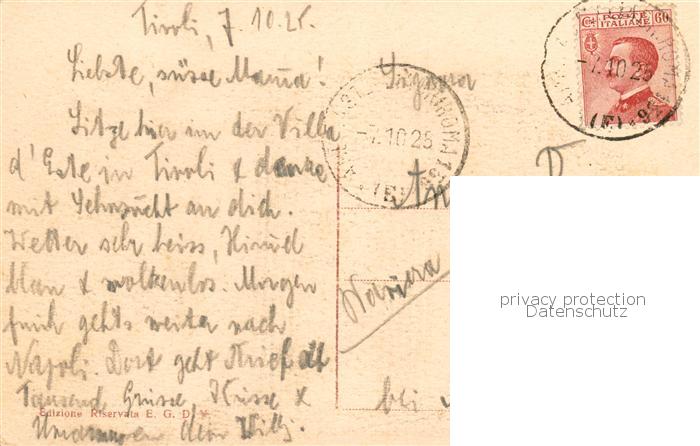 Tivoli, 7. 10. 25.
Liebste, süsse Mama!
Sitze hier in der Villa
d'Este in Tivoli & denke
mit Sehnsucht an dich.
Wetter sehr heiss, Himmel
blau & wolkenlos. Morgen
früh gehts weiter nach
Napoli. Dort geht Brief ab
Tausend Grüsse, Küsse &
Umarmungen dein Willy.
Edizione Riservata E. G. D. V.
Signora
bei
POSTE
ITALIANE
Cmi 60
-7.10 25
(E)
-7.10 25
(E)
privacy protection
Datenschutz